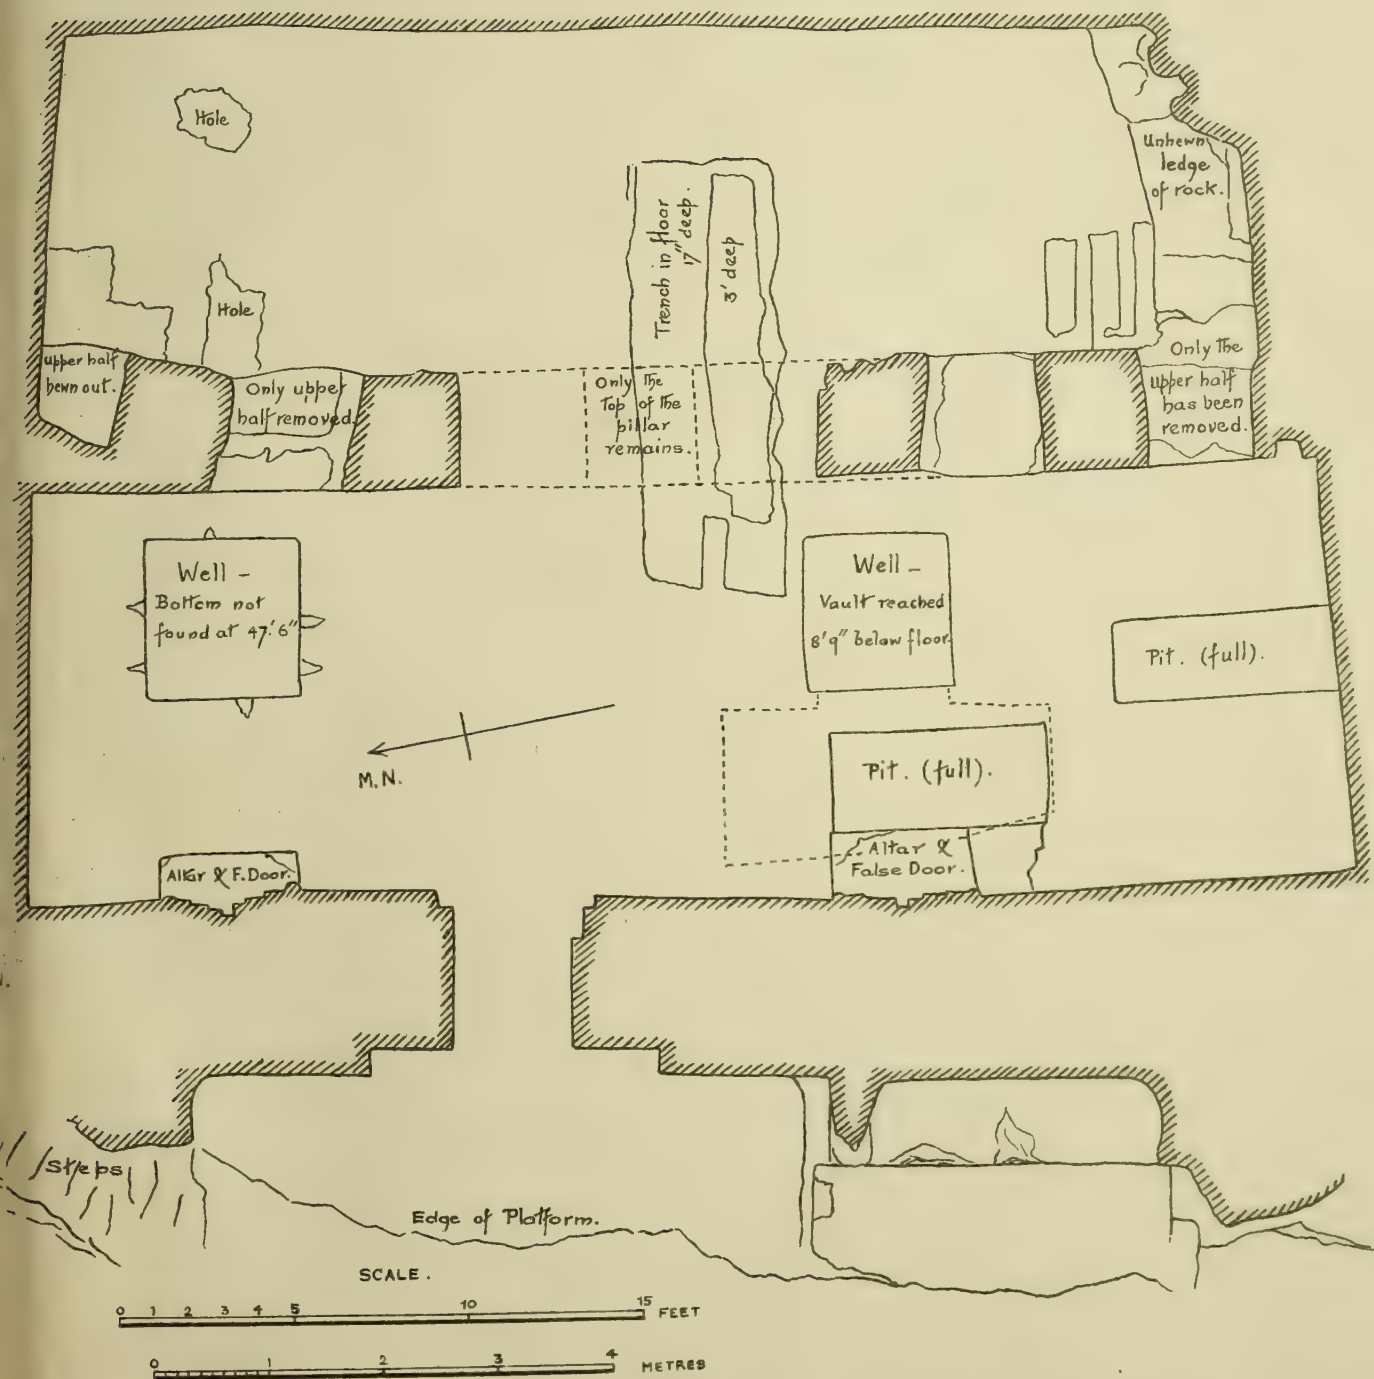 Hole
Unhewn
ledge
of rock.
Trench in floor
17" deep.
3' deep
Hole
upper half
hewn out.
Only upper
half removed.
Only the
Top of the
pillar
remains.
Only the
upper half
has been
removed.
Well –
Bottom not
found at 47'.6"
Well –
Vault reached
8'9" below floor.
Pit. (full).
M.N.
Pit. (full).
Altar & F. Door.
Altar &
False Door.
Steps
Edge of Platform.
SCALE.
0 1 2 3 4 5 10 15 FEET
0 1 2 3 4 METRES